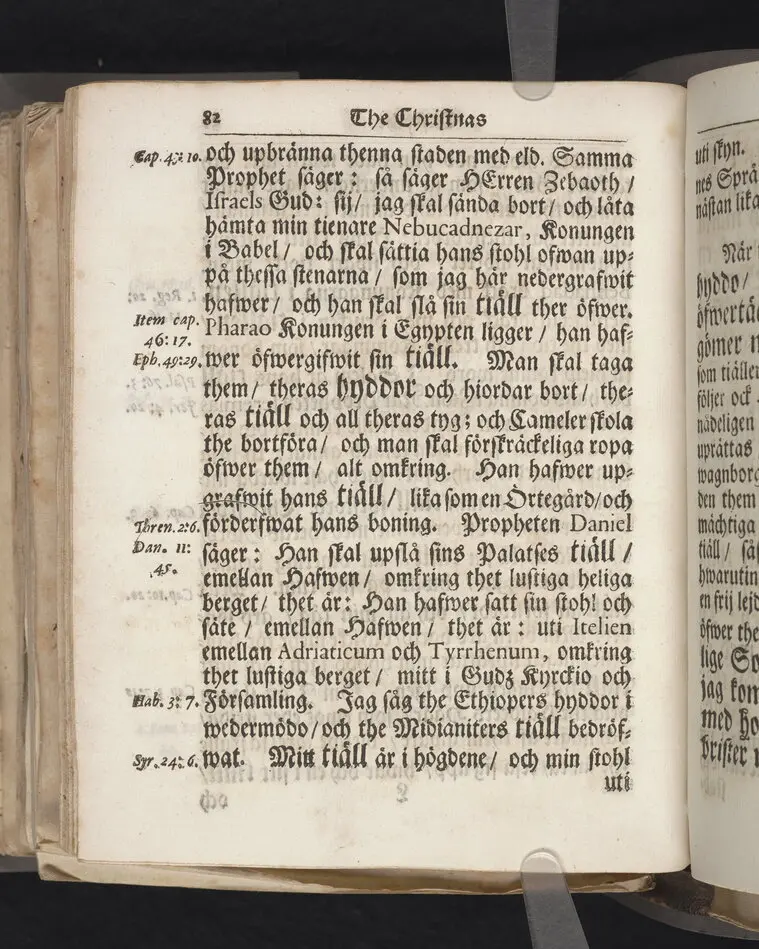 82 The Christnas
Cap. 43: 10. och upbränna thenna staden med eld. Samma
Prophet säger: så säger HErren Zebaoth /
Israels Gud: sij / jag skal sända bort / och låta
hämta min tienare Nebucadnezar, Konungen
i Babel / och skal sättia hans stohl ofwan up-
på thessa stenarna / som jag här nedergrafwit
hafwer / och han skal slå sin tiäll ther öfwer.
Item cap. 46: 17. Pharao Konungen i Egypten ligger / han haf-
Eph. 49: 29. wer öfwergifwit sin tiäll. Man skal taga
them / theras hyddor och hiordar bort / the-
ras tiäll och all theras tyg; och Cameler skola
the bortföra / och man skal förskräckeliga ropa
öfwer them / alt omkring. Han hafwer up-
grafwit hans tiäll / lika som en Örtegård / och
Thren. 2: 6. förderfwat hans boning. Propheten Daniel
Dan. 11: 45. säger: Han skal upslå sins Palatses tiäll /
emellan Hafwen / omkring thet lustiga heliga
berget / thet är: Han hafwer satt sin stohl och
säte / emellan Hafwen / thet är: uti Italien
emellan Adriaticum och Tyrrhenum, omkring
thet lustiga berget / mitt i Gudz Kyrckio och
Hab. 3: 7. Församling. Jag såg the Ethiopers hyddor i
wedermödo / och the Midianiters tiäll bedröf-
Syr. 24: 6. wat. Mitt tiäll är i högdene / och min stohl
uti
uti skyn.
nes Språ
nästan lika
När
hyddo /
öfwertä
gömer
som tiäller
följer och
nådeligen
uprättas
wagnborg
den them
mächtiga
tiäll / så
hwarutin
en frij lejd
öfwer the
lige So
jag kom
med ho
brister